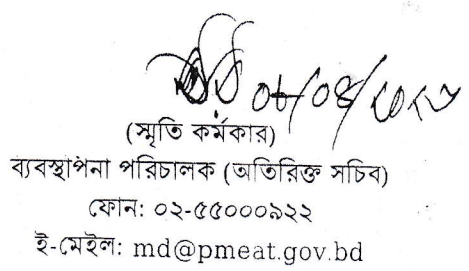 (স্মৃতি কর্মকার)
ব্যবস্থাপনা পরিচালক (অতিরিক্ত সচিব)
ফোন: ০২-৫৫০০০৯২২
ই-মেইল: md@pmeat.gov.bd